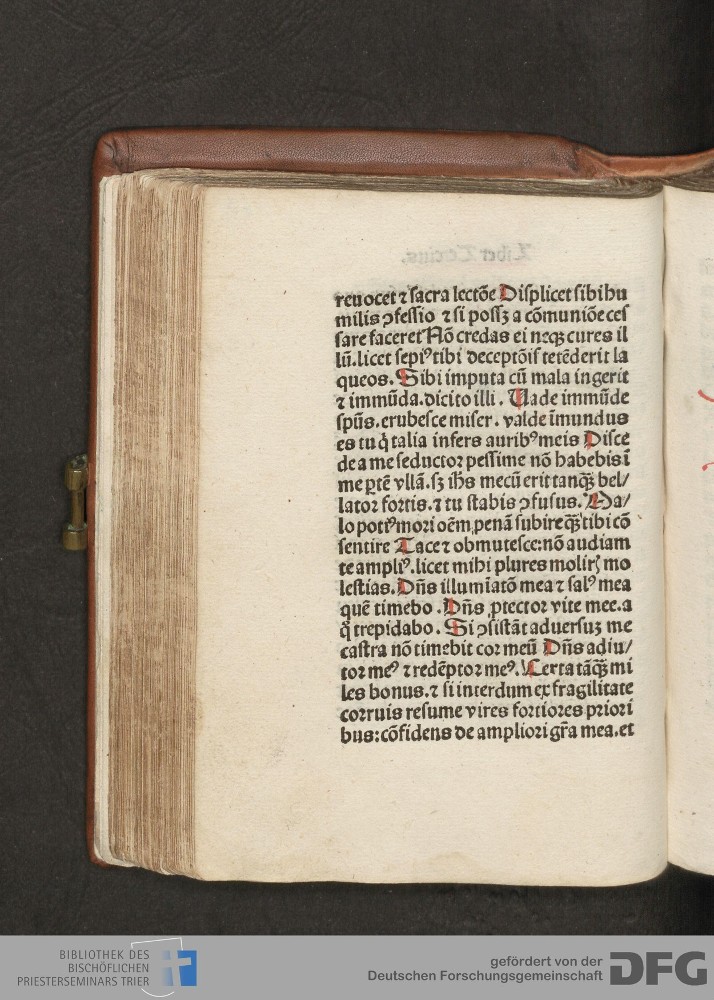 reuocet ⁊ sacra lectōe Displicet sibi hu
milis ꝯfessio ⁊ si possꝫ a cōmuniōe ces
sare faceret Nō credas ei neqꝫ cures il
lū. licet sepiꝰ tibi deceptōis tetēderit la
queos. Sibi imputa cū mala ingerit
⁊ immūda. dicito illi. Uade immūde
spūs. erubesce miser. valde īmundus
es tu q̇ talia infers auribꝰ meis Disce
de a me seductor pessime nō habebis ī
me ꝑtē vllā. sꝫ ihs mecū erit tanqꝫ̄ bel/
lator fortis. ⁊ tu stabis ꝯfusus. Ma/
lo potiꝰ mori oēm penā subire qꝫ̄ tibi cō
sentire Tace ⁊ obmutesce: nō audiam
te ampliꝰ. licet mihi plures molirꝭ mo
lestias. Dn̄s illumīatō mea ⁊ salꝰ mea
quē timebo. Dn̄s ꝓtector vite mee. a
q̊ trepidabo. Si ꝯsistāt aduersuꝫ me
castra nō timebit cor meū Dn̄s adiu/
tor meꝰ ⁊ redēptor meꝰ. Certa tāqꝫ̄ mi
les bonus. ⁊ si interdum ex fragilitate
corruis resume vires fortiores priori
bus: cōfidens de ampliori gr̄a mea. et
BIBLIOTHEK DES
BISCHÖFLICHEN
PRIESTERSEMINARS TRIER
gefördert von der
Deutschen Forschungsgemeinschaft DFG